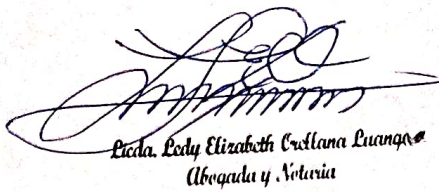 Licda. Ledy Elizabeth Orellana Luanga
Abogada y Notaria